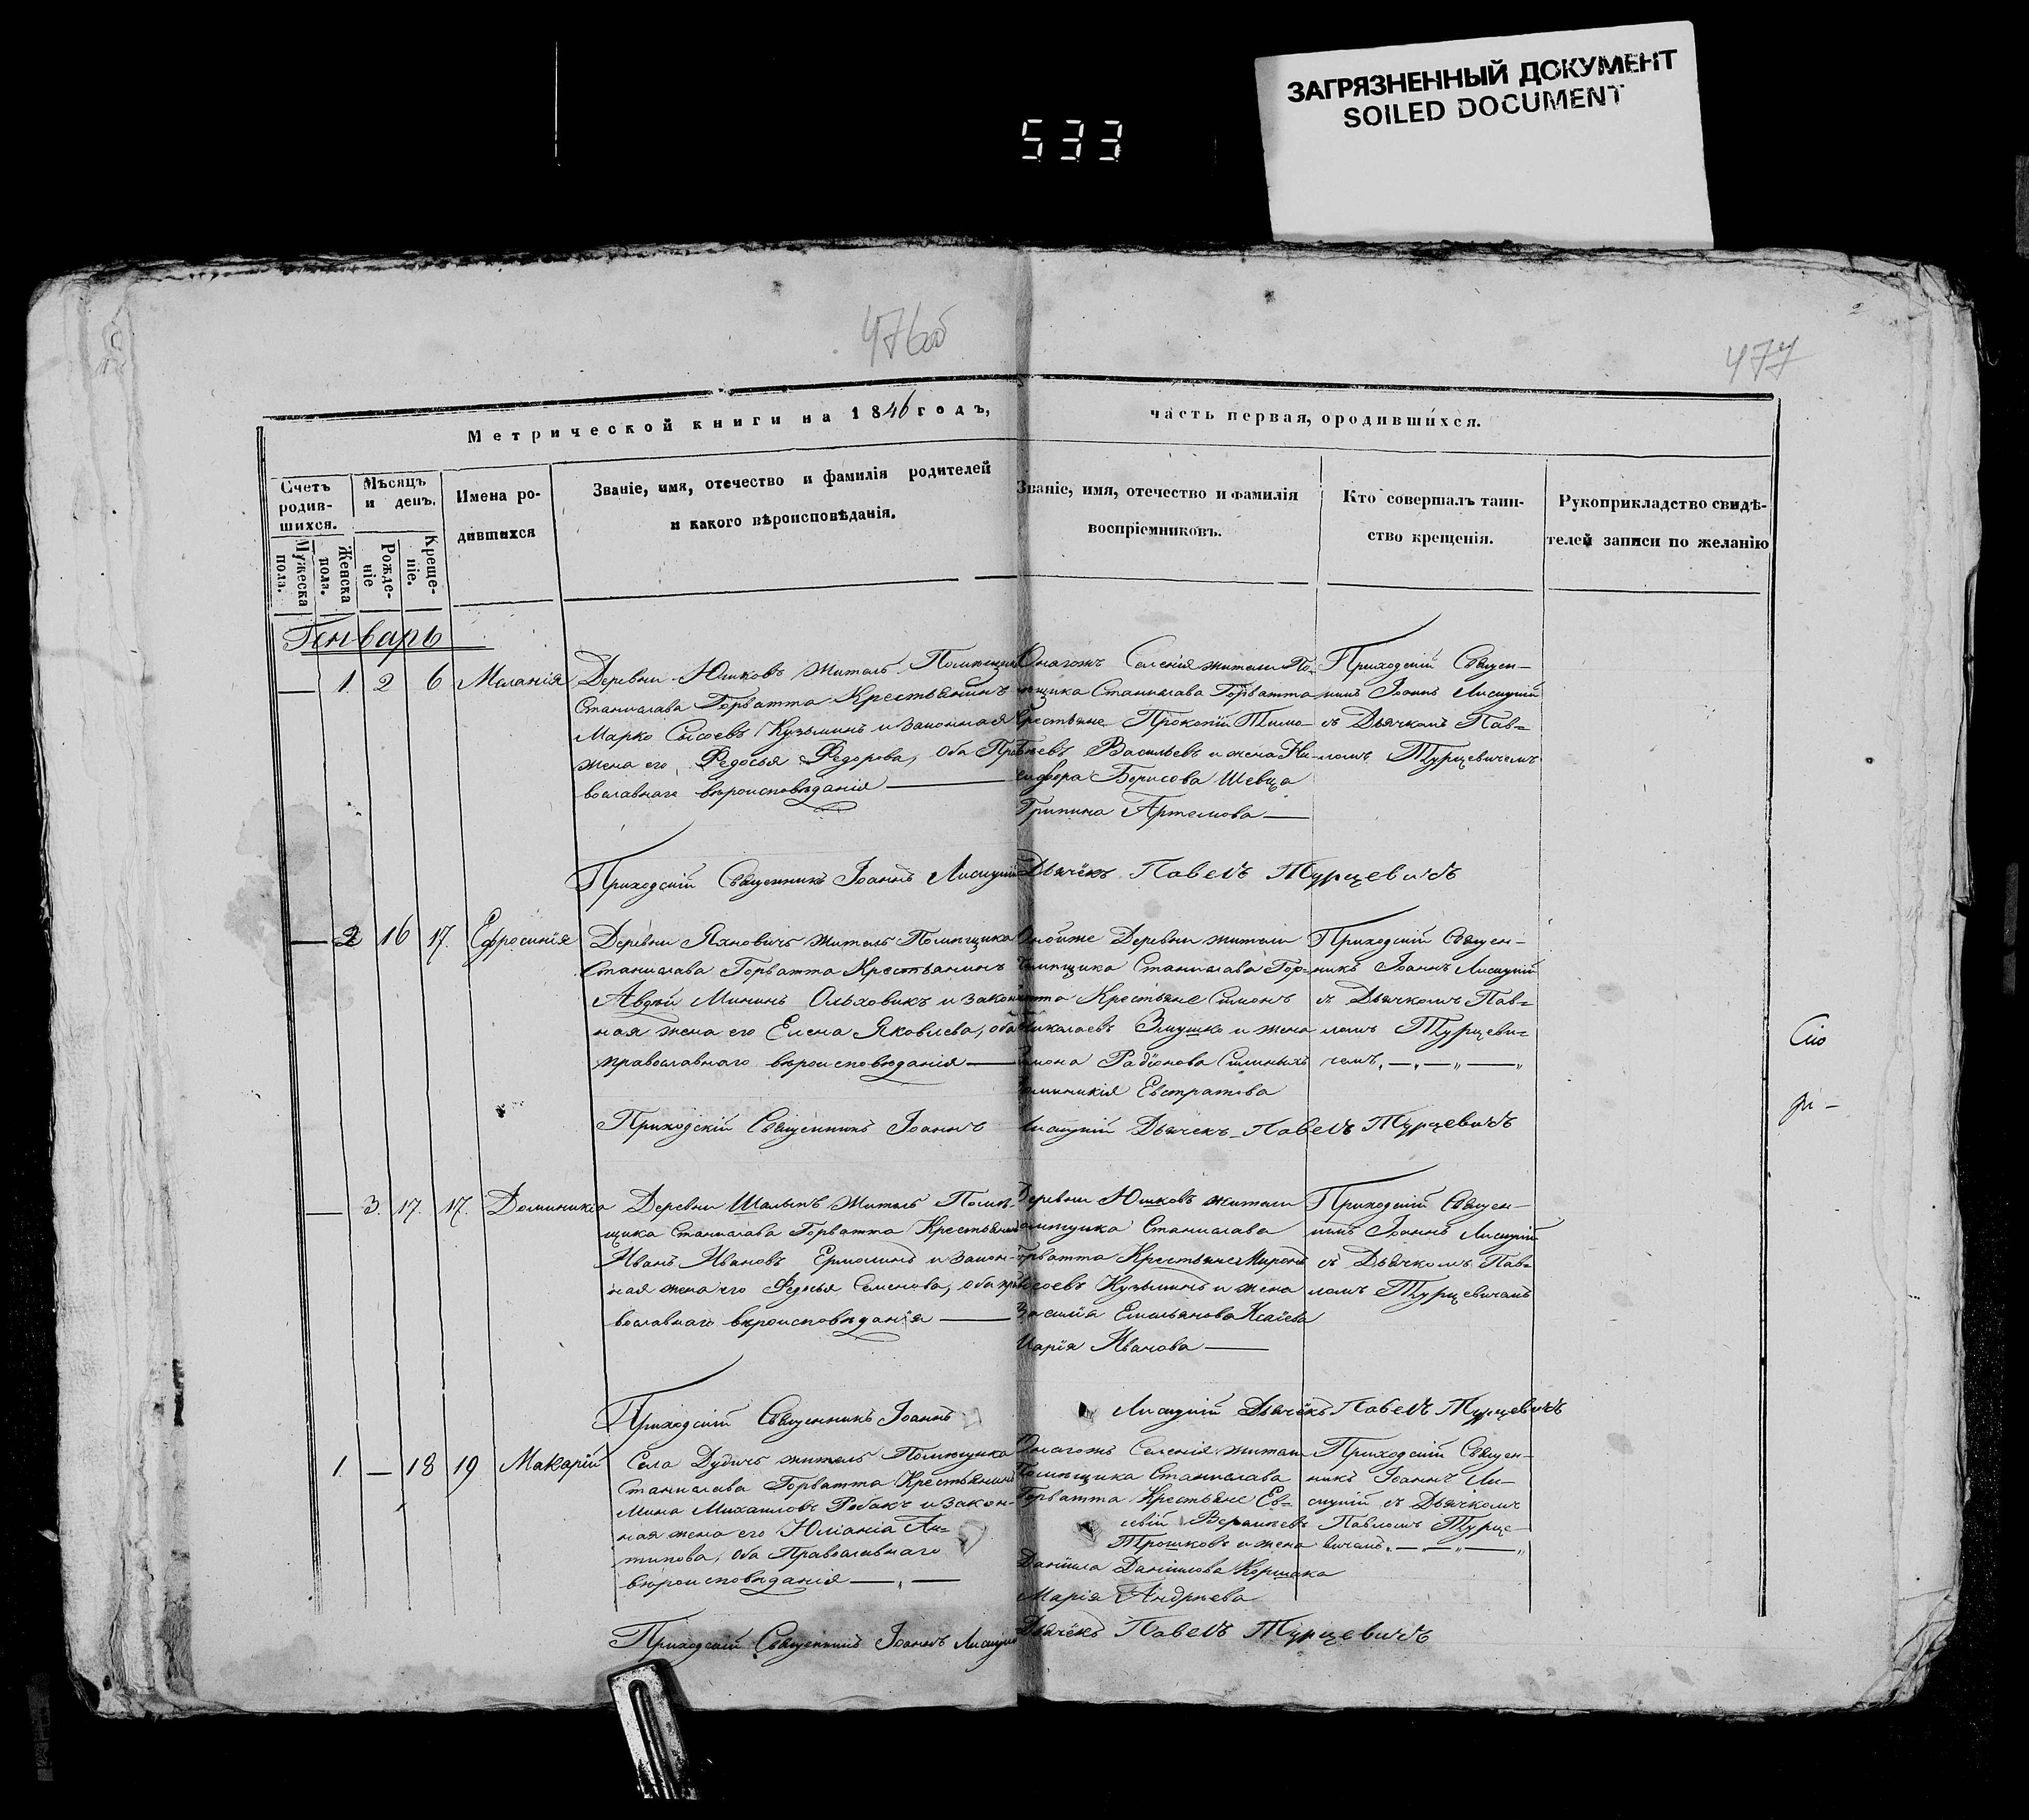 ЗАГРЯЗНЕННЫЙ ДОКУМЕНТ
SOILED DOCUMENT
533
476об
477
Метрической книги на 1846 годъ,
часть первая, ородившихся.
Счетъ родив-шихся.
Мужеска пола.
Женска пола.
Мѣсяцъ и день.
Рожде-ніе
Креще-ніе.
Имена ро-
дившихся
Званіе, имя, отечество и фамилія родителей
и какого вѣроисповѣданія.
Званіе, имя, отечество и фамилія
воспріемниковъ.
Кто совершалъ таин-
ство крещенія.
Рукоприкладство свидѣ-
телей записи по желанію
Генварь
— 1. 2 6 Меланія
Деревни Юшковъ житель Помѣщика
Станислава Горватта Крестьянинъ
Марко Сысоевъ Кузьминъ и законная
жена его Федосья Федорова, оба Пра
вославнаго вѣроисповѣданія —
Онагожъ Селенія жители По-
мѣщика Станислава Горватта
Крестьяне Прокопій Тимо-
Васильевъ и жена Ни-
кифора Борисова Шевца
Грипина Артемова —
Приходскій Священ-
никъ Іоаннъ Лисицкій
съ Дьячкомъ Пав=
ломъ Турцевичемъ
Приходскій Священникъ Іоаннъ Лисицкій Дьячёкъ Павелъ Турцевичъ
— 2 16 17. Ефросинія
Деревни Яхновичъ житель Помѣщика
Станислава Горватта Крестьянинъ
Авдѣй Мининъ Ольховикъ и закон
ная жена его Елена Яковлева, оба
православнаго вѣроисповѣданія —
Онойже Деревни жители
Помѣщика Станислава Гор=
ватта Крестьяне Симонъ
Николаевъ Змушко и жена
Радіонова
Доминикія Евстратова
Приходскій Священ-
никъ Іоаннъ Лисицкій
съ Дьячкомъ Пав=
ломъ Турцеви=
чемъ. —„—„ —„
Приходскій Священникъ Іоаннъ Лисицкій Дьячекъ Павелъ Турцевичъ
— 3. 17. 17. Доминикія
Деревни Шалыпъ житель Помѣ-
щика Станислава Горватта Крестьянинъ
Иванъ Ивановъ Ермолинъ и закон-
ная жена его Федосья Семенова, оба пра
вославнаго вѣроисповѣданія —
Деревни Юшковъ жители
Помѣщика Станислава
Горватта Крестьяне Миронъ
Сысоевъ Кузьминъ и жена
Емельянова Исаіева
Марія Иванова —
Приходскій Священ-
никъ Іоаннъ Лисицкій
съ Дьячкомъ Пав=
ломъ Турцевичемъ
Приходскій Священникъ Іоаннъ Лисицкій Дьячёкъ Павелъ Турцевичъ
1. — 18 19 Макарій
Села Дудичъ житель Помѣщика
Станислава Горватта Крестьянинъ
Мина Михаиловъ Робакъ и закон-
ная жена его Юліанія Ан=
типова, оба Православнаго
вѣроисповѣданія —„—
Онагожъ Селенія жители
Помѣщика Станислава
Горватта Крестьяне Ев=
севій
Трошковъ и жена
Даніила Даніилова Коршака
Марія Андрѣева
Приходскій Священ-
никъ Іоаннъ Ли-
сицкій съ Дьячкомъ
Павломъ Турце-
вичемъ. — — „ —„
Приходскій Священникъ Іоаннъ Лисицкій Дьячёкъ Павелъ Турцевичъ